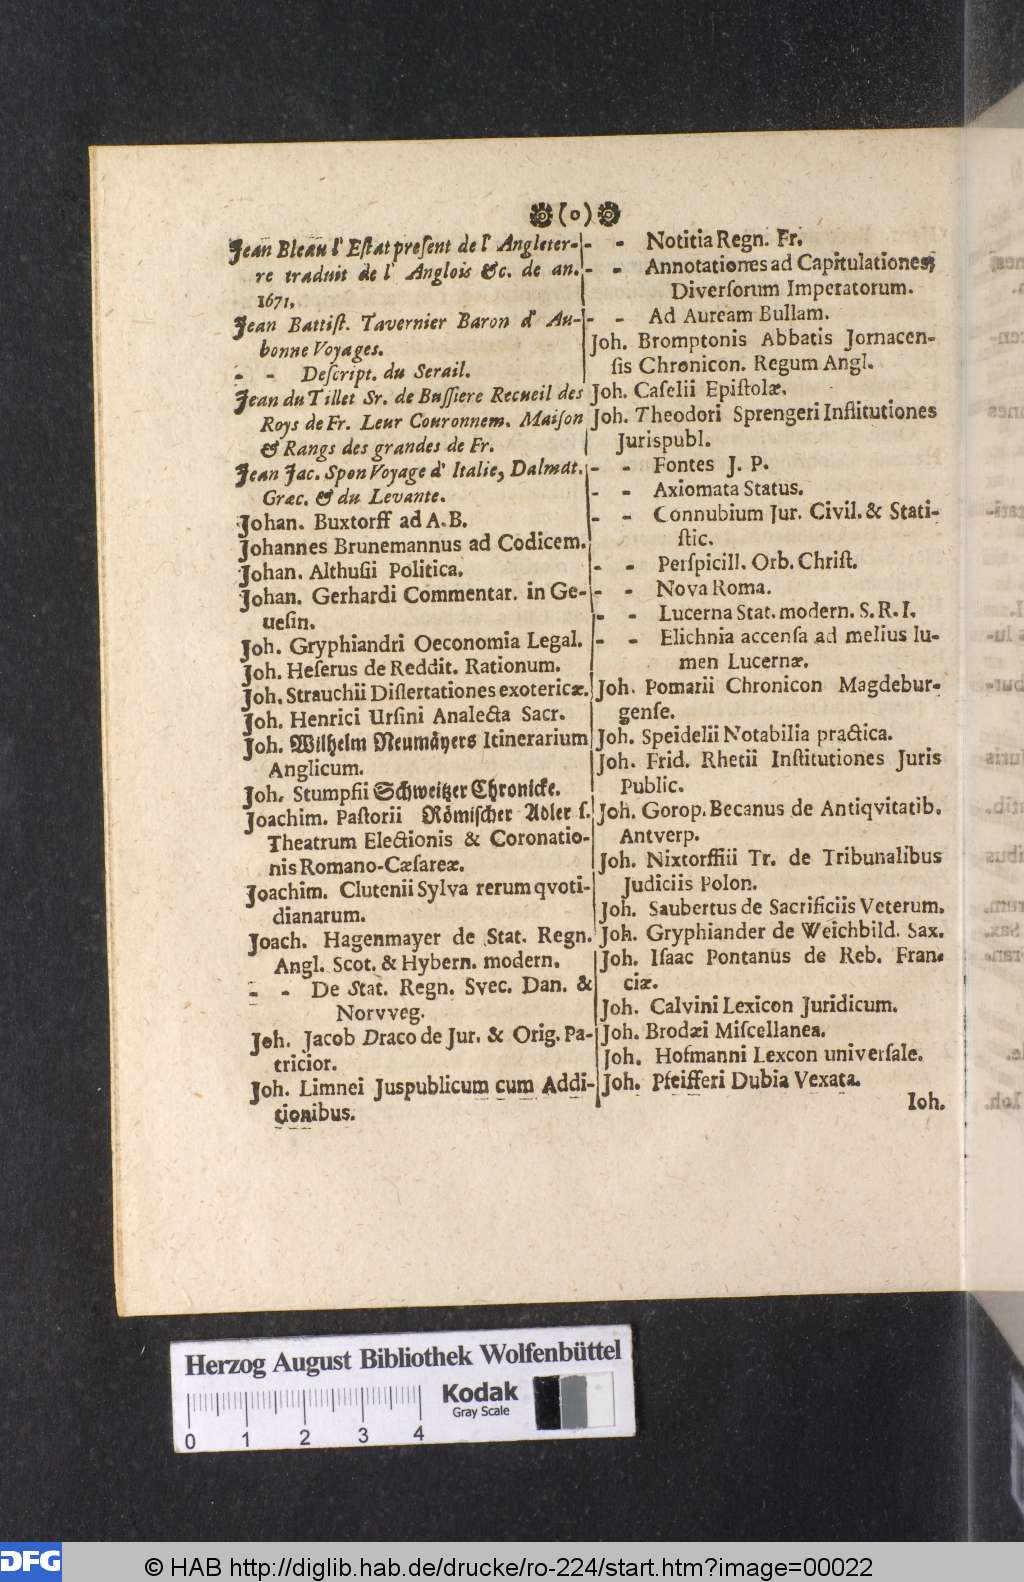 (o)
Jean Bleau l' Eſtat preſent de l' Angleter-
re traduit de l' Anglois &c. de an.
1671.
Jean Battiſt. Tavernier Baron d' Au-
bonne Voyages.
- - Deſcript. du Serail.
Jean du Tillet Sr. de Buſſiere Recueil des
Roys de Fr. Leur Couronnem. Maiſon
& Rangs des grandes de Fr.
Jean Jac. Spon Voyage d' Italie, Dalmat.
Græc. & du Levante.
Johan. Buxtorff ad A.B.
Johannes Brunemannus ad Codicem.
Johan. Althuſii Politica.
Johan. Gerhardi Commentar. in Ge-
ueſin.
Joh. Gryphiandri Oeconomia Legal.
Joh. Heſerus de Reddit. Rationum.
Joh. Strauchii Diſſertationes exotericæ.
Joh. Henrici Urſini Analecta Sacr.
Joh. Wilhelm Neumäyers Itinerarium
Anglicum.
Joh. Stumpfii Schweitzer Chronicke.
Joachim. Paſtorii Römiſcher Adler ſ.
Theatrum Electionis & Coronatio-
nis Romano-Cæſareæ.
Joachim. Clutenii Sylva rerum qvoti-
dianarum.
Joach. Hagenmayer de Stat. Regn.
Angl. Scot. & Hybern. modern.
- - De Stat. Regn. Svec. Dan. &
Norvveg.
Joh. Jacob Draco de Jur. & Orig. Pa-
tricior.
Joh. Limnei Juspublicum cum Addi-
tionibus.
- - Notitia Regn. Fr.
- - Annotationes ad Capitulationes
Diverſorum Imperatorum.
- - Ad Auream Bullam.
Joh. Bromptonis Abbatis Jornacen-
ſis Chronicon. Regum Angl.
Joh. Caſelii Epiſtolæ.
Joh. Theodori Sprengeri Inſtitutiones
Jurispubl.
- - Fontes J. P.
- - Axiomata Status.
- - Connubium Jur. Civil. & Stati-
ſtic.
- - Perſpicill. Orb. Chriſt.
- - Nova Roma.
- - Lucerna Stat. modern. S. R. I.
- - Elichnia accenſa ad melius lu-
men Lucernæ.
Joh. Pomarii Chronicon Magdebur-
genſe.
Joh. Speidelii Notabilia practica.
Joh. Frid. Rhetii Inſtitutiones Juris
Public.
Joh. Gorop. Becanus de Antiqvitatib.
Antverp.
Joh. Nixtorffiii Tr. de Tribunalibus
Judiciis Polon.
Joh. Saubertus de Sacrificiis Veterum.
Joh. Gryphiander de Weichbild. Sax.
Joh. Iſaac Pontanus de Reb. Fran-
ciæ.
Joh. Calvini Lexicon Juridicum.
Joh. Brodæi Miſcellanea.
Joh. Hofmanni Lexcon univerſale.
Joh. Pfeifferi Dubia Vexata.
Ioh.
Herzog August Bibliothek Wolfenbüttel
Kodak
Gray Scale
0 1 2 3 4
DFG
© HAB http://diglib.hab.de/drucke/ro-224/start.htm?image=00022